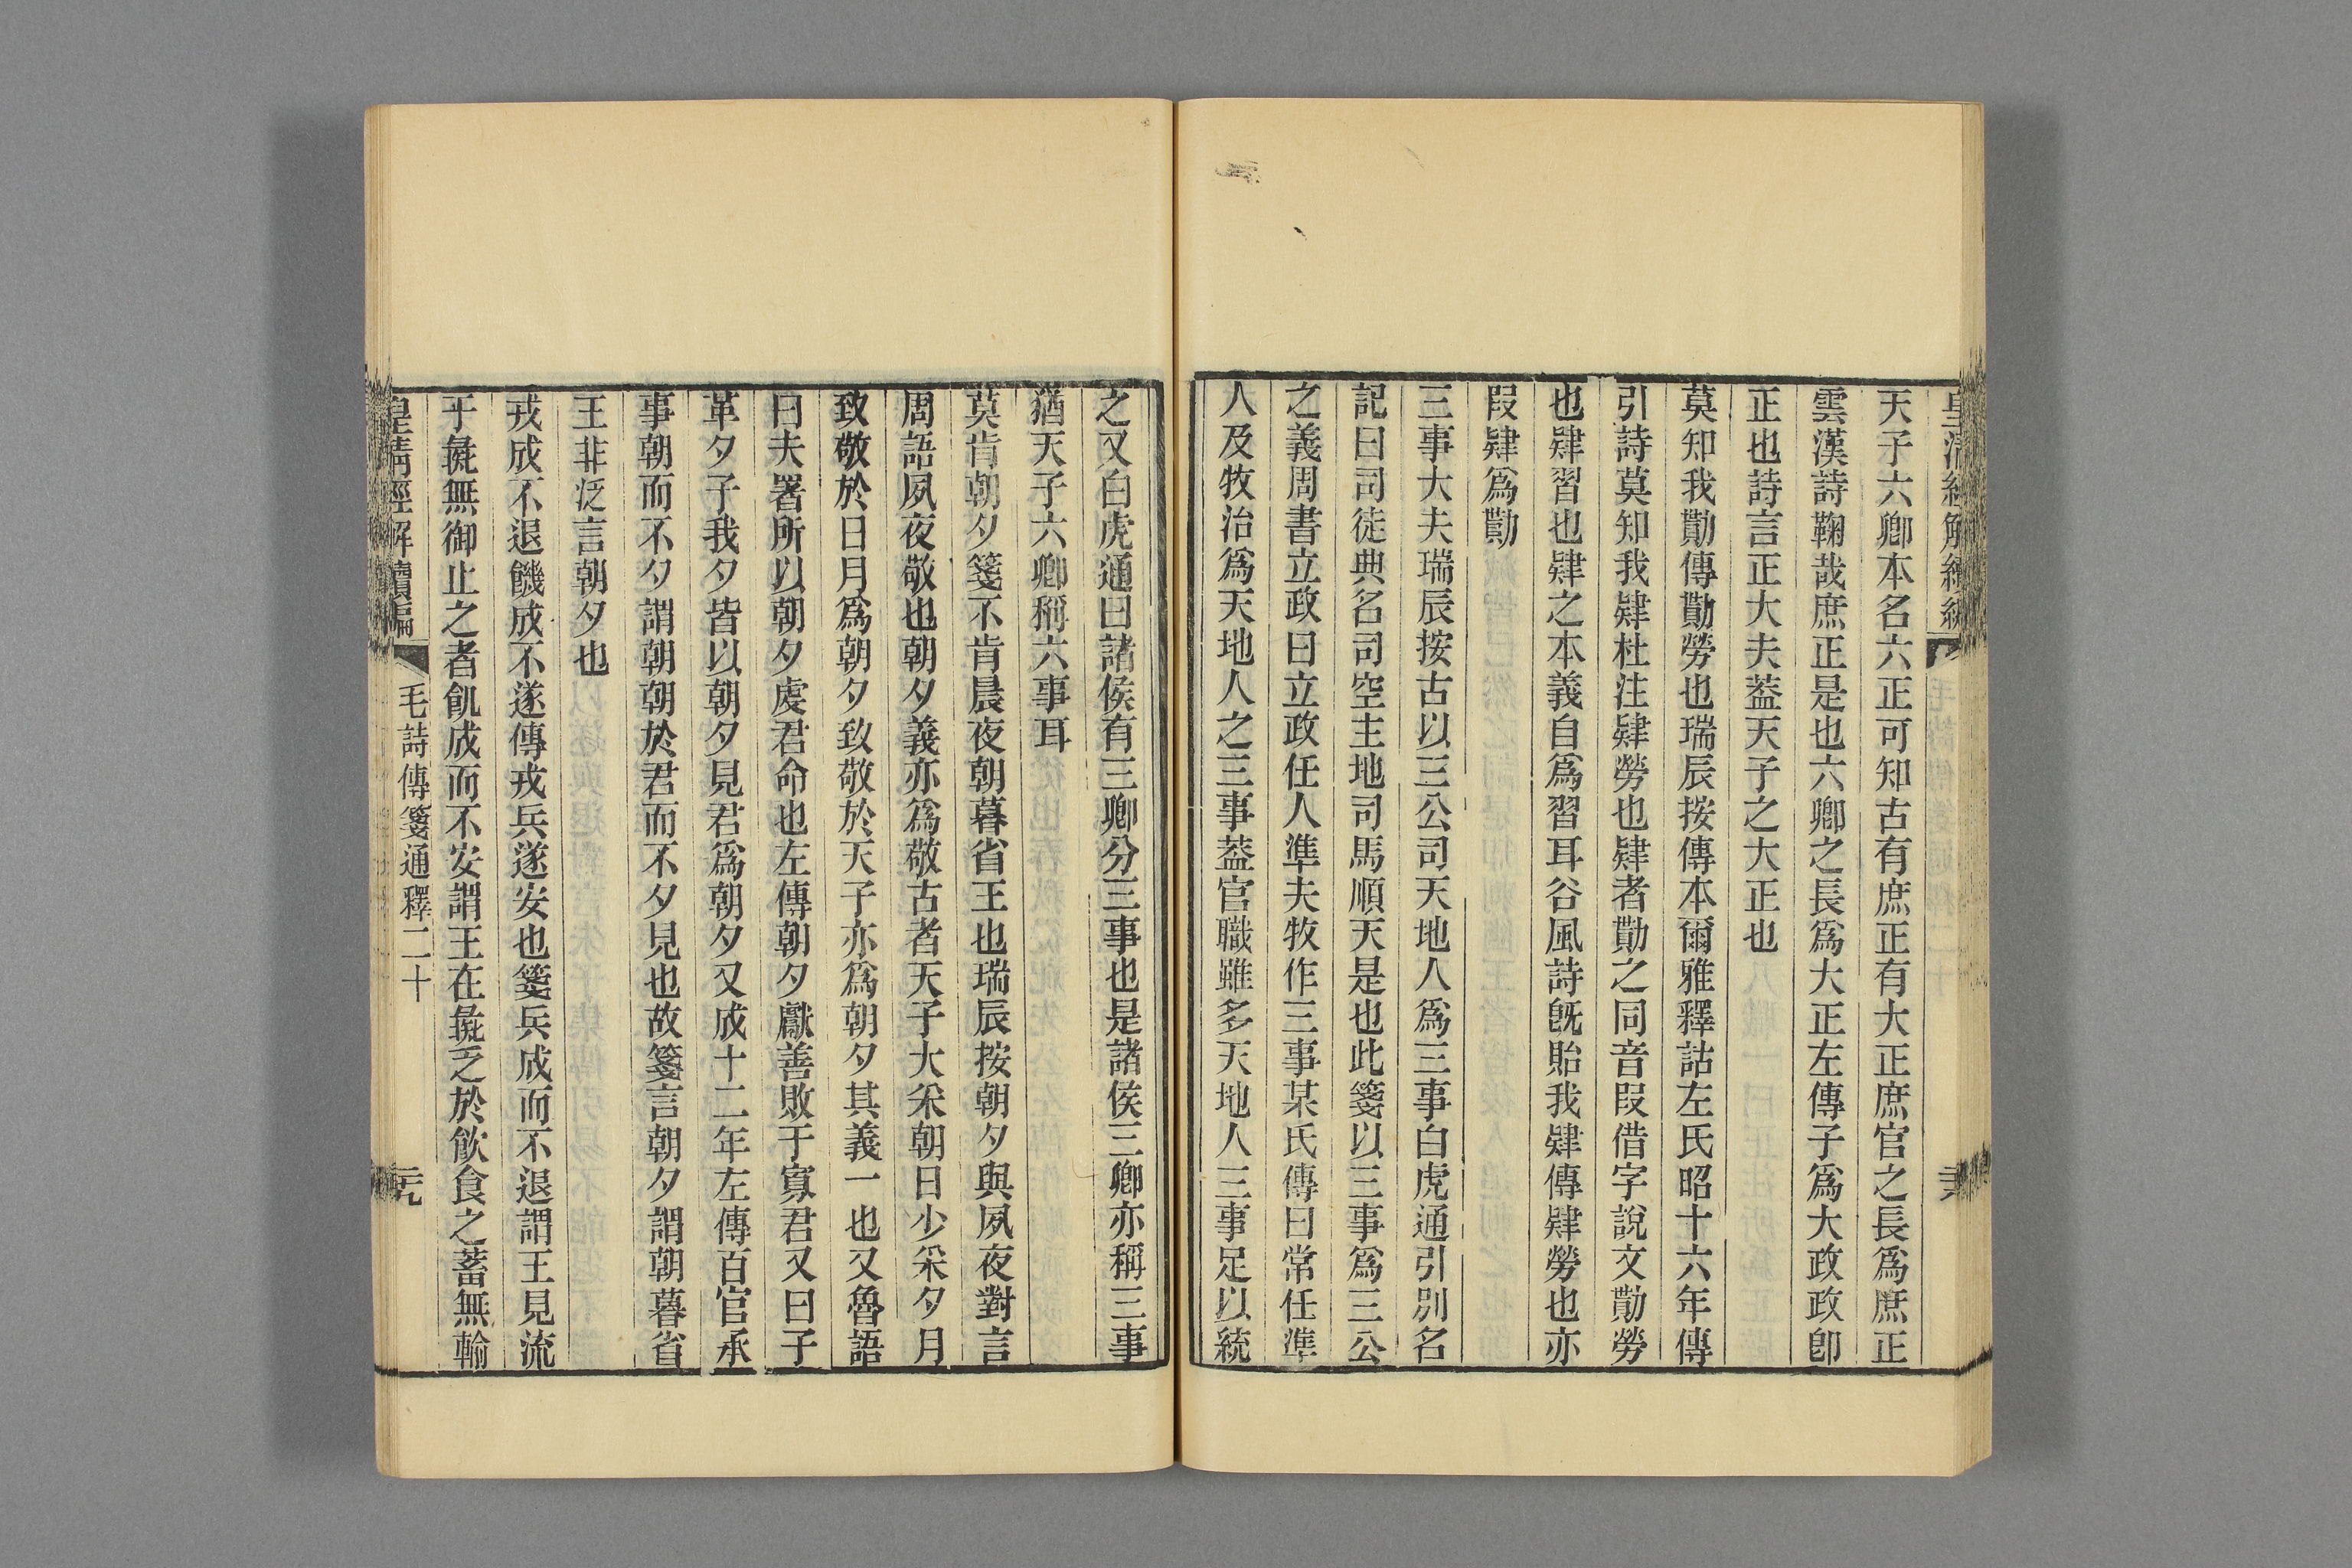 皇清經解續編
天子六卿本名六正可知古有庶正有大正庶官之長爲庶正
雲漢詩鞠哉庶正是也六卿之長爲大正左傳子爲大政政卽
正也詩言正大夫葢天子之大正也
莫知我勩傳勩勞也瑞辰按傳本爾雅釋詁左氏昭十六年傳
引詩莫知我肄杜注肄勞也肄者勩之同音叚借字說文勩勞
也肄習也肄之本義自爲習耳谷風詩旣貽我肄傳肄勞也亦
叚肄爲勩
三事大夫瑞辰按古以三公司天地人爲三事白虎通引別名
記曰司徒典名司空主地司馬順天是也此箋以三事爲三公
之義周書立政曰立政任人準夫牧作三事某氏傳曰常任準
人及牧治爲天地人之三事葢官職雖多天地人三事足以統
之又白虎通曰諸侯有三卿分三事也是諸侯三卿亦稱三事
猶天子六卿稱六事耳
莫肯朝夕箋不肯晨夜朝暮省王也瑞辰按朝夕與夙夜對言
周語夙夜敬也朝夕義亦爲敬古者天子大采朝日少采夕月
致敬於日月爲朝夕致敬於天子亦爲朝夕其義一也又魯語
曰夫署所以朝夕虔君命也左傳朝夕獻善敗于寡君又曰子
革夕子我夕皆以朝夕見君爲朝夕又成十二年左傳百官承
事朝而不夕謂朝朝於君而不夕見也故箋言朝夕謂朝暮省
王非泛言朝夕也
戎成不退饑成不遂傳戎兵遂安也箋兵成而不退謂王見流
于彘無御止之者飢成而不安謂王在彘乏於飮食之蓄無輸
皇清經解續編
毛詩傳箋通釋二十